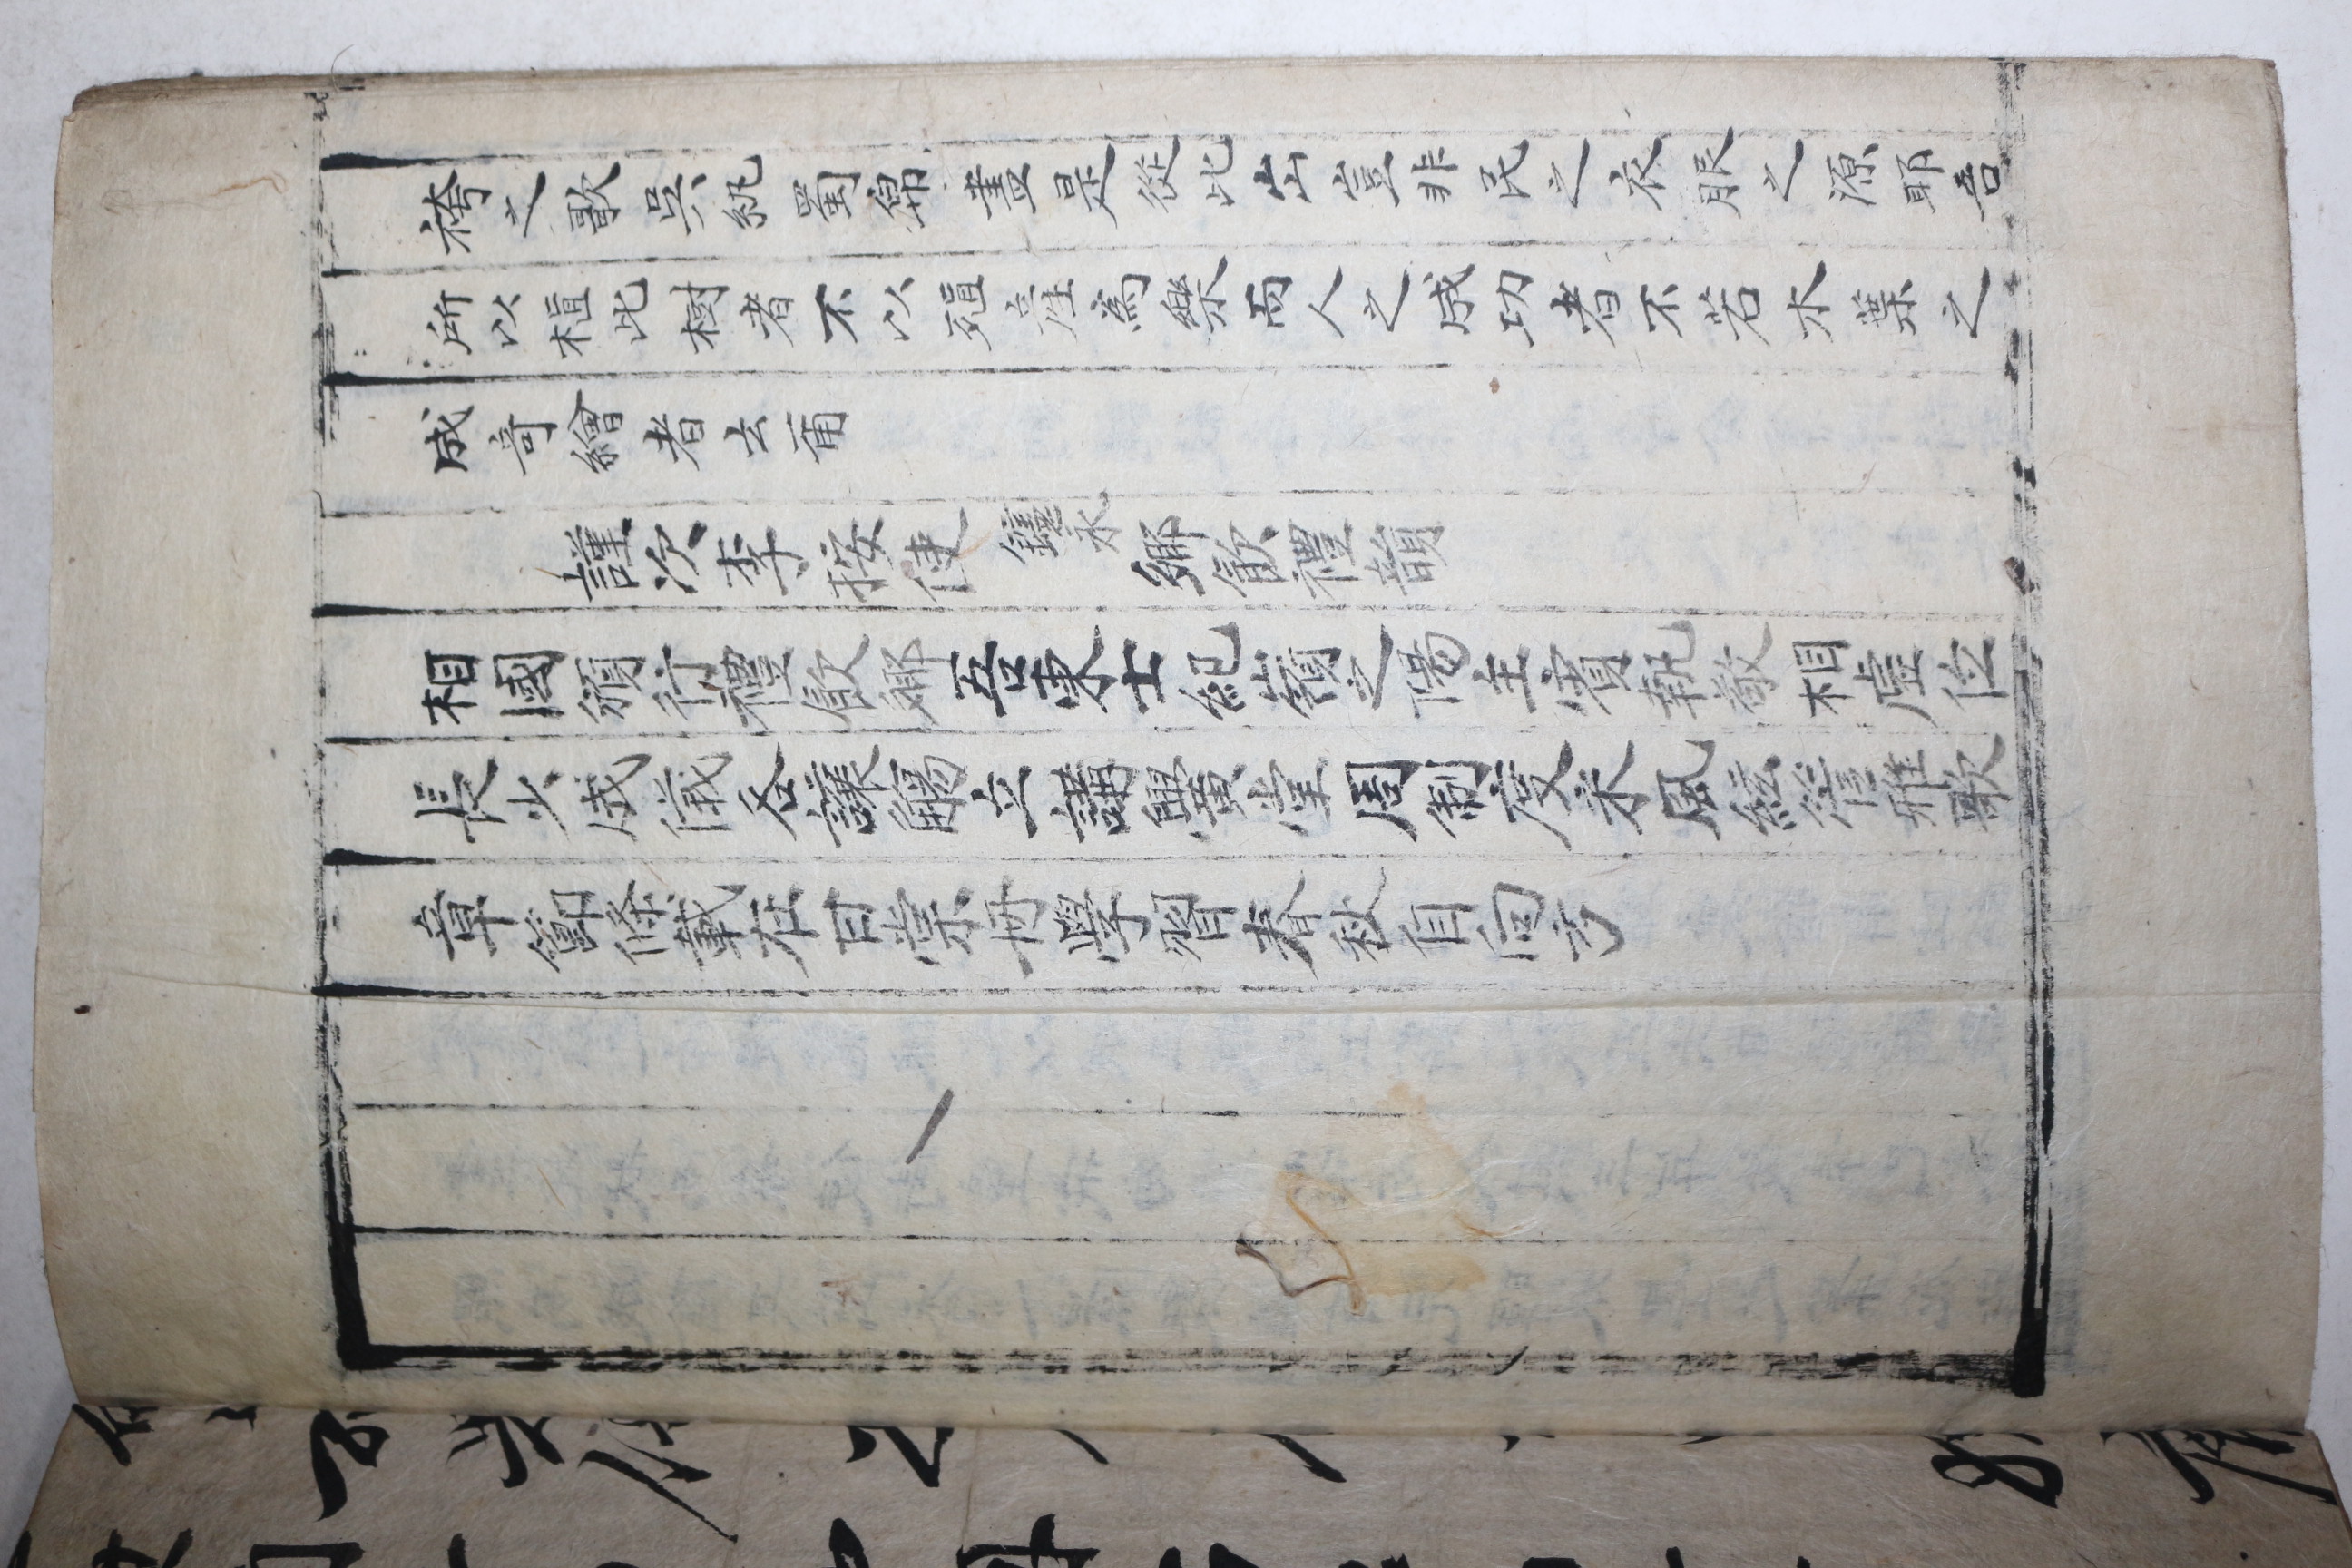 袴之歌吳紈蜀帛盡是從此出豈非民之衣服之源耶吾
所以植此樹者不以殖產爲樂而人之成功者不若木葉之
成奇繪者云爾
謹次李按使𨯶永鄕飮禮韻
相國頒行禮飮鄕吾東士紀嶺之陽主賓執敬相虛位
長少成儀各讓觴立講黌堂周制度采風絃管雅歌
章節條載在甘棠冊學習春秋自向方